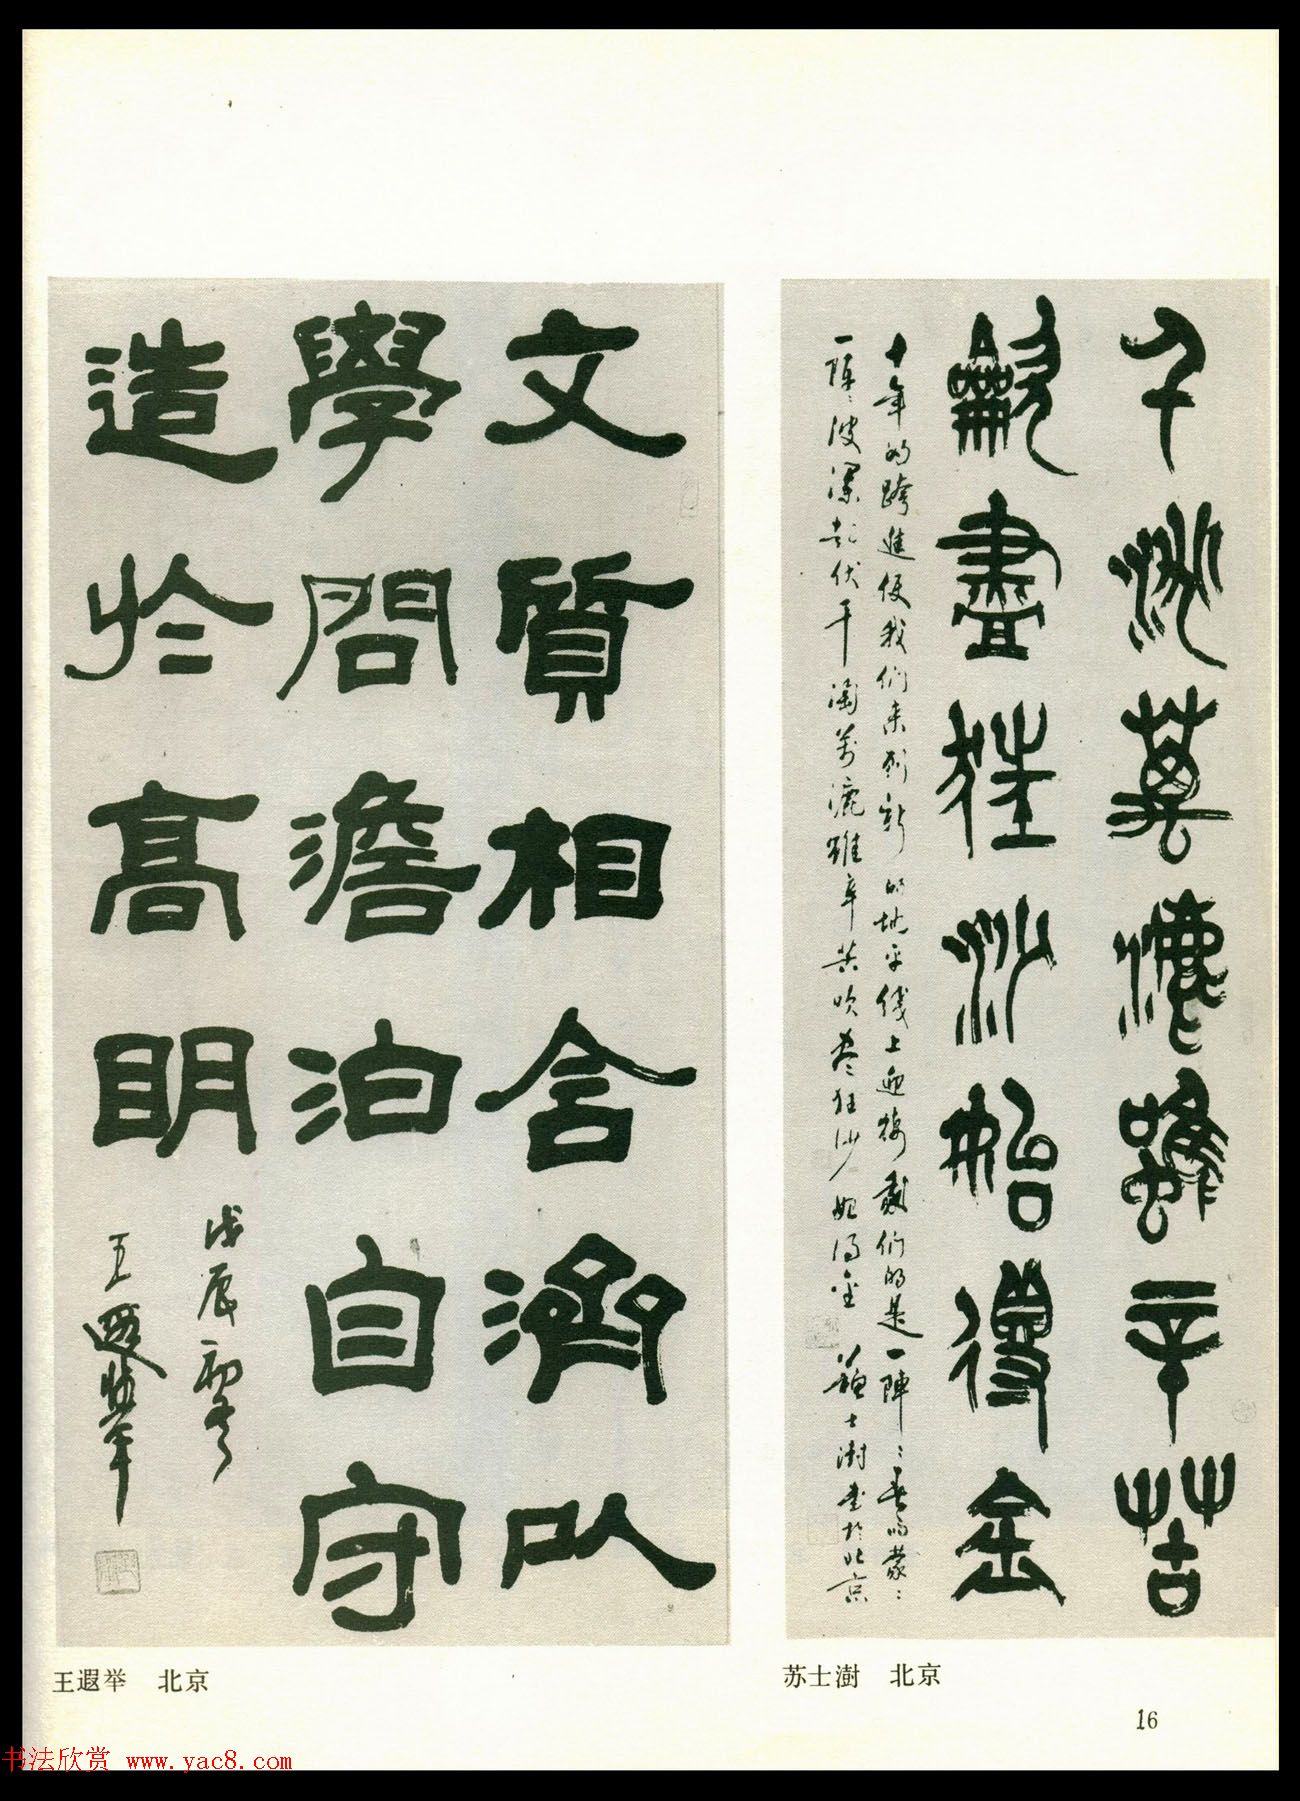 千淘萬漉雖辛苦
龡盡狂沙始得金
十年的跨進使我们来到新的地平线上迎接我们的是一陣〻春雨蒙〻
一陣〻波瀾起伏千淘萬漉雖辛苦吹盡狂沙始得金 蘇士澍書於北京
文質相含濟以
學問澹泊自守
造於高明
戊辰初
王遐舉
王遐举 北京
苏士澍 北京
16
书法欣赏 www.yac8.com